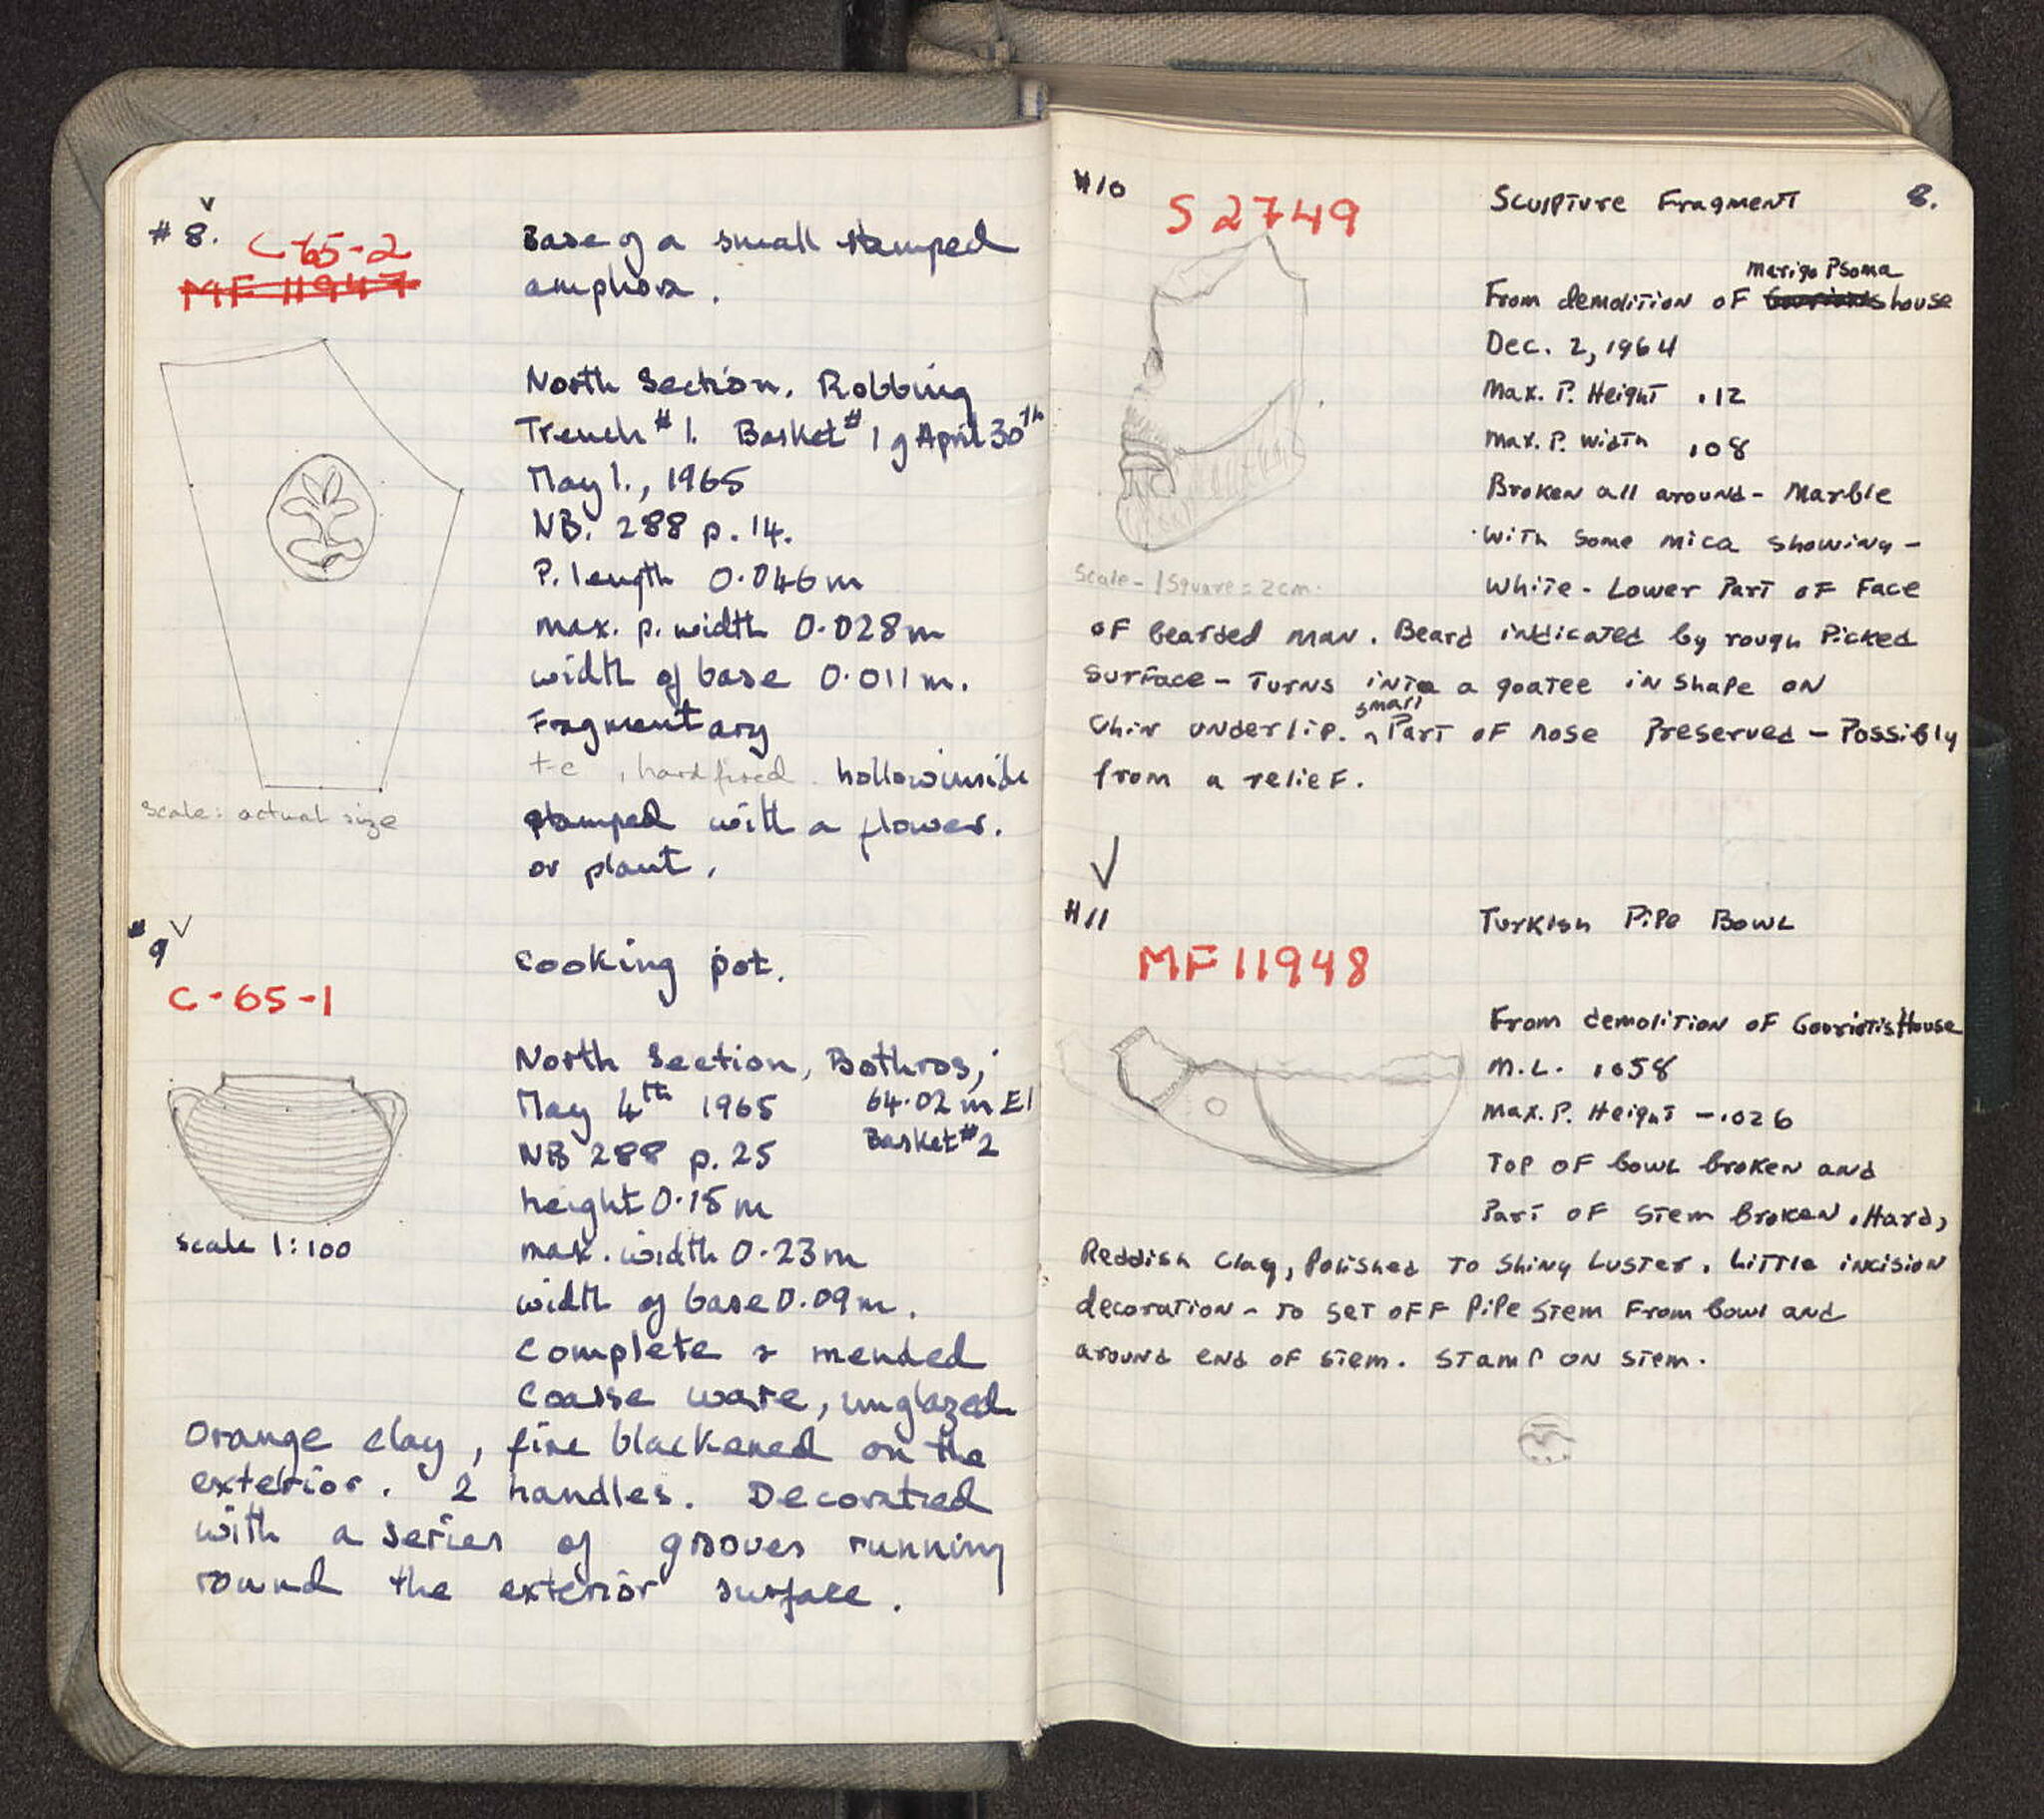 # 8.
C-65-2
MF 11947
Base of a small stamped
amphora.
North Section. Robbing
Trench # 1. Basket # 1 of April 30th
May 1., 1965
NB. 288 p. 14.
P. length 0.046 m
max. p. width 0.028 m
width of base 0.011 m.
Fragmentary
t-c , hard fired hollow inside
stamped with a flower.
or plant.
Scale: actual size
# 9
C-65-1
Cooking pot.
North Section, Bothros,
May 4th 1965 64.02 m El
NB 288 p. 25 Basket # 2
height 0.15 m
max. width 0.23 m
width of base 0.09 m.
Complete & mended
Coarse ware, unglazed
Scale 1:100
Orange clay, fire blackened on the
exterior. 2 handles. Decorated
with a series of grooves running
round the exterior surface.
8.
#10
S 2749
Sculpture Fragment
Marigo Psoma
From demolition of house
Dec. 2, 1964
Max. P. Height .12
Max. P. width .08
Broken all around - Marble
with some mica showing -
White - Lower Part of Face
Scale - 1 Square = 2cm.
of bearded man. Beard indicated by rough Picked
surface - Turns into a goatee in shape on
Chin underlip. small Part of nose Preserved - Possibly
from a relief.
#11
MF 11948
Turkish Pipe Bowl
From demolition of Gouriotis House
M.L. .058
Max. P. Height - .026
Top of bowl broken and
Part of stem broken. Hard,
Reddish Clay, Polished to Shiny Luster. Little incision
decoration - to set off Pipe stem From bowl and
around end of stem. Stamp on stem.